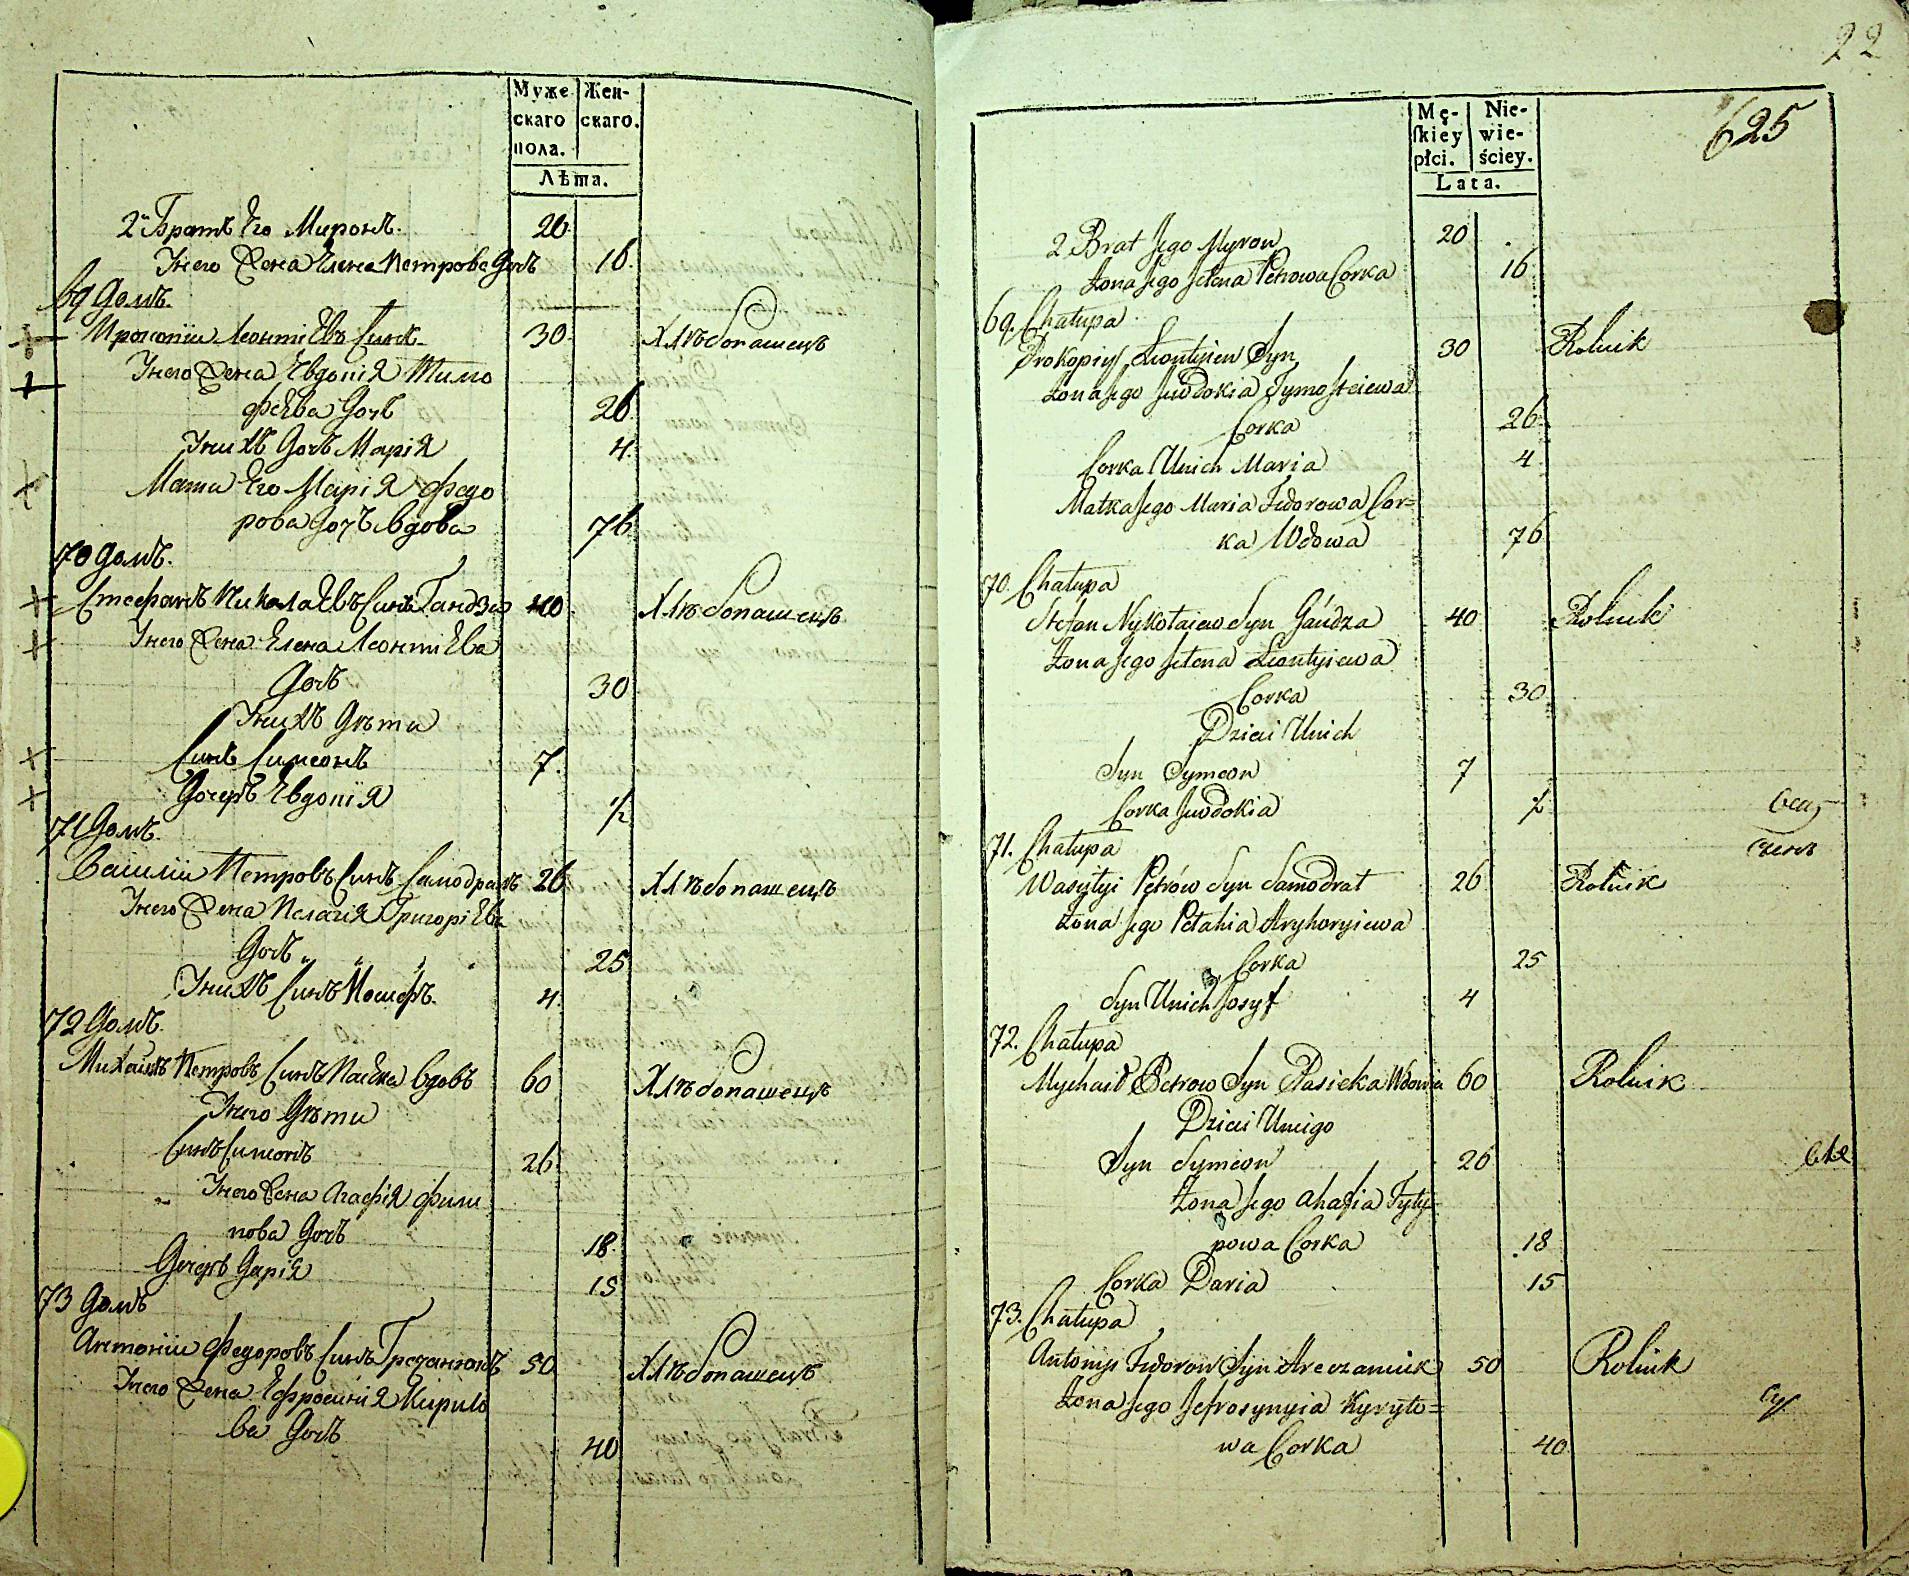 Муже Жен-
скаго скаго.
пола.
Лѣта.
2й Братъ Его Миронъ. 20
Унего Жена Елена Петрова Дочь 16
69 Домъ.
Прокопіи Леонтіевъ Синъ 30 Хлѣбопашецъ
Унего Жена Евдокія Тимо
феева Дочь 26
Унихъ Дочь Марія 4
Мати Его Марія Федо
рова Дочь вдова 76
70 Домъ.
Стефанъ Николаевъ Синъ Гандза 40 Хлѣбопашецъ
Унего Жена Елена Леонтіева
Дочь 30
Унихъ Дѣти
Синъ Симеонъ 7.
Дочерь Евдокія 1/2
71 Домъ.
Василіи Петровъ Синъ Самодралъ 26 Хлѣбопашецъ
Унего Жена Пелагія Григоріева
Дочь 25
Унихъ Синъ Иосифъ. 4
72 Домъ.
Михаилъ Петровъ Синъ Пасѣка вдовъ 60 Хлѣбопашецъ
Унего Дѣти
Синъ Симеонъ 26
Унего Жена Агафія Фили
пова Дочь 18
Дочерь Дарія 15
73 Домъ
Антоніи Федоровъ Синъ Гречанюкъ 50 Хлѣбопашецъ
Унего Жена Ефросинія Кирило
ва Дочь 40
22
625
Mę- Nie-
ſkiey wie-
płci. ściey.
Lata.
2 Brat Jego Myron 20
Żona Jego Jełena Petrowa Corka 16
69. Chałupa
Prokopiy Leontyiew Syn 30 Rolnik
Żona Jego Jewdokia Tymofteiewa
Corka 26
Corka Unich Maria 4
Matka Jego Maria Fedorowa Cor=
ka Wdowa 76
70. Chałupa
Stefan Nykołaiew Syn Gandza 40 Rolnik
Żona Jego Jełena Leontyiewa
Corka 30
Dzieci Unich
Syn Symeon 7
Corka Jewdokia 1/2
71. Chałupa
Wasylyi Petrów Syn Samodrał 26 Rolnik
Żona Jego Pełahia Hryhoryiewa
Corka 25
Syn Unich Josyf 4
72. Chałupa
Mychaił Petrow Syn Pasieka Wdowiec 60 Rolnik
Dzieci Uniego
Syn Symeon 26
Żona Jego Ahafia Fyły=
powa Corka 18
Corka Daria 15
73. Chałupa
Antonyi Fedorow Syn Hreczaniuk 50 Rolnik
Żona Jego Jefrosynyia Kyryło=
wa Corka 40